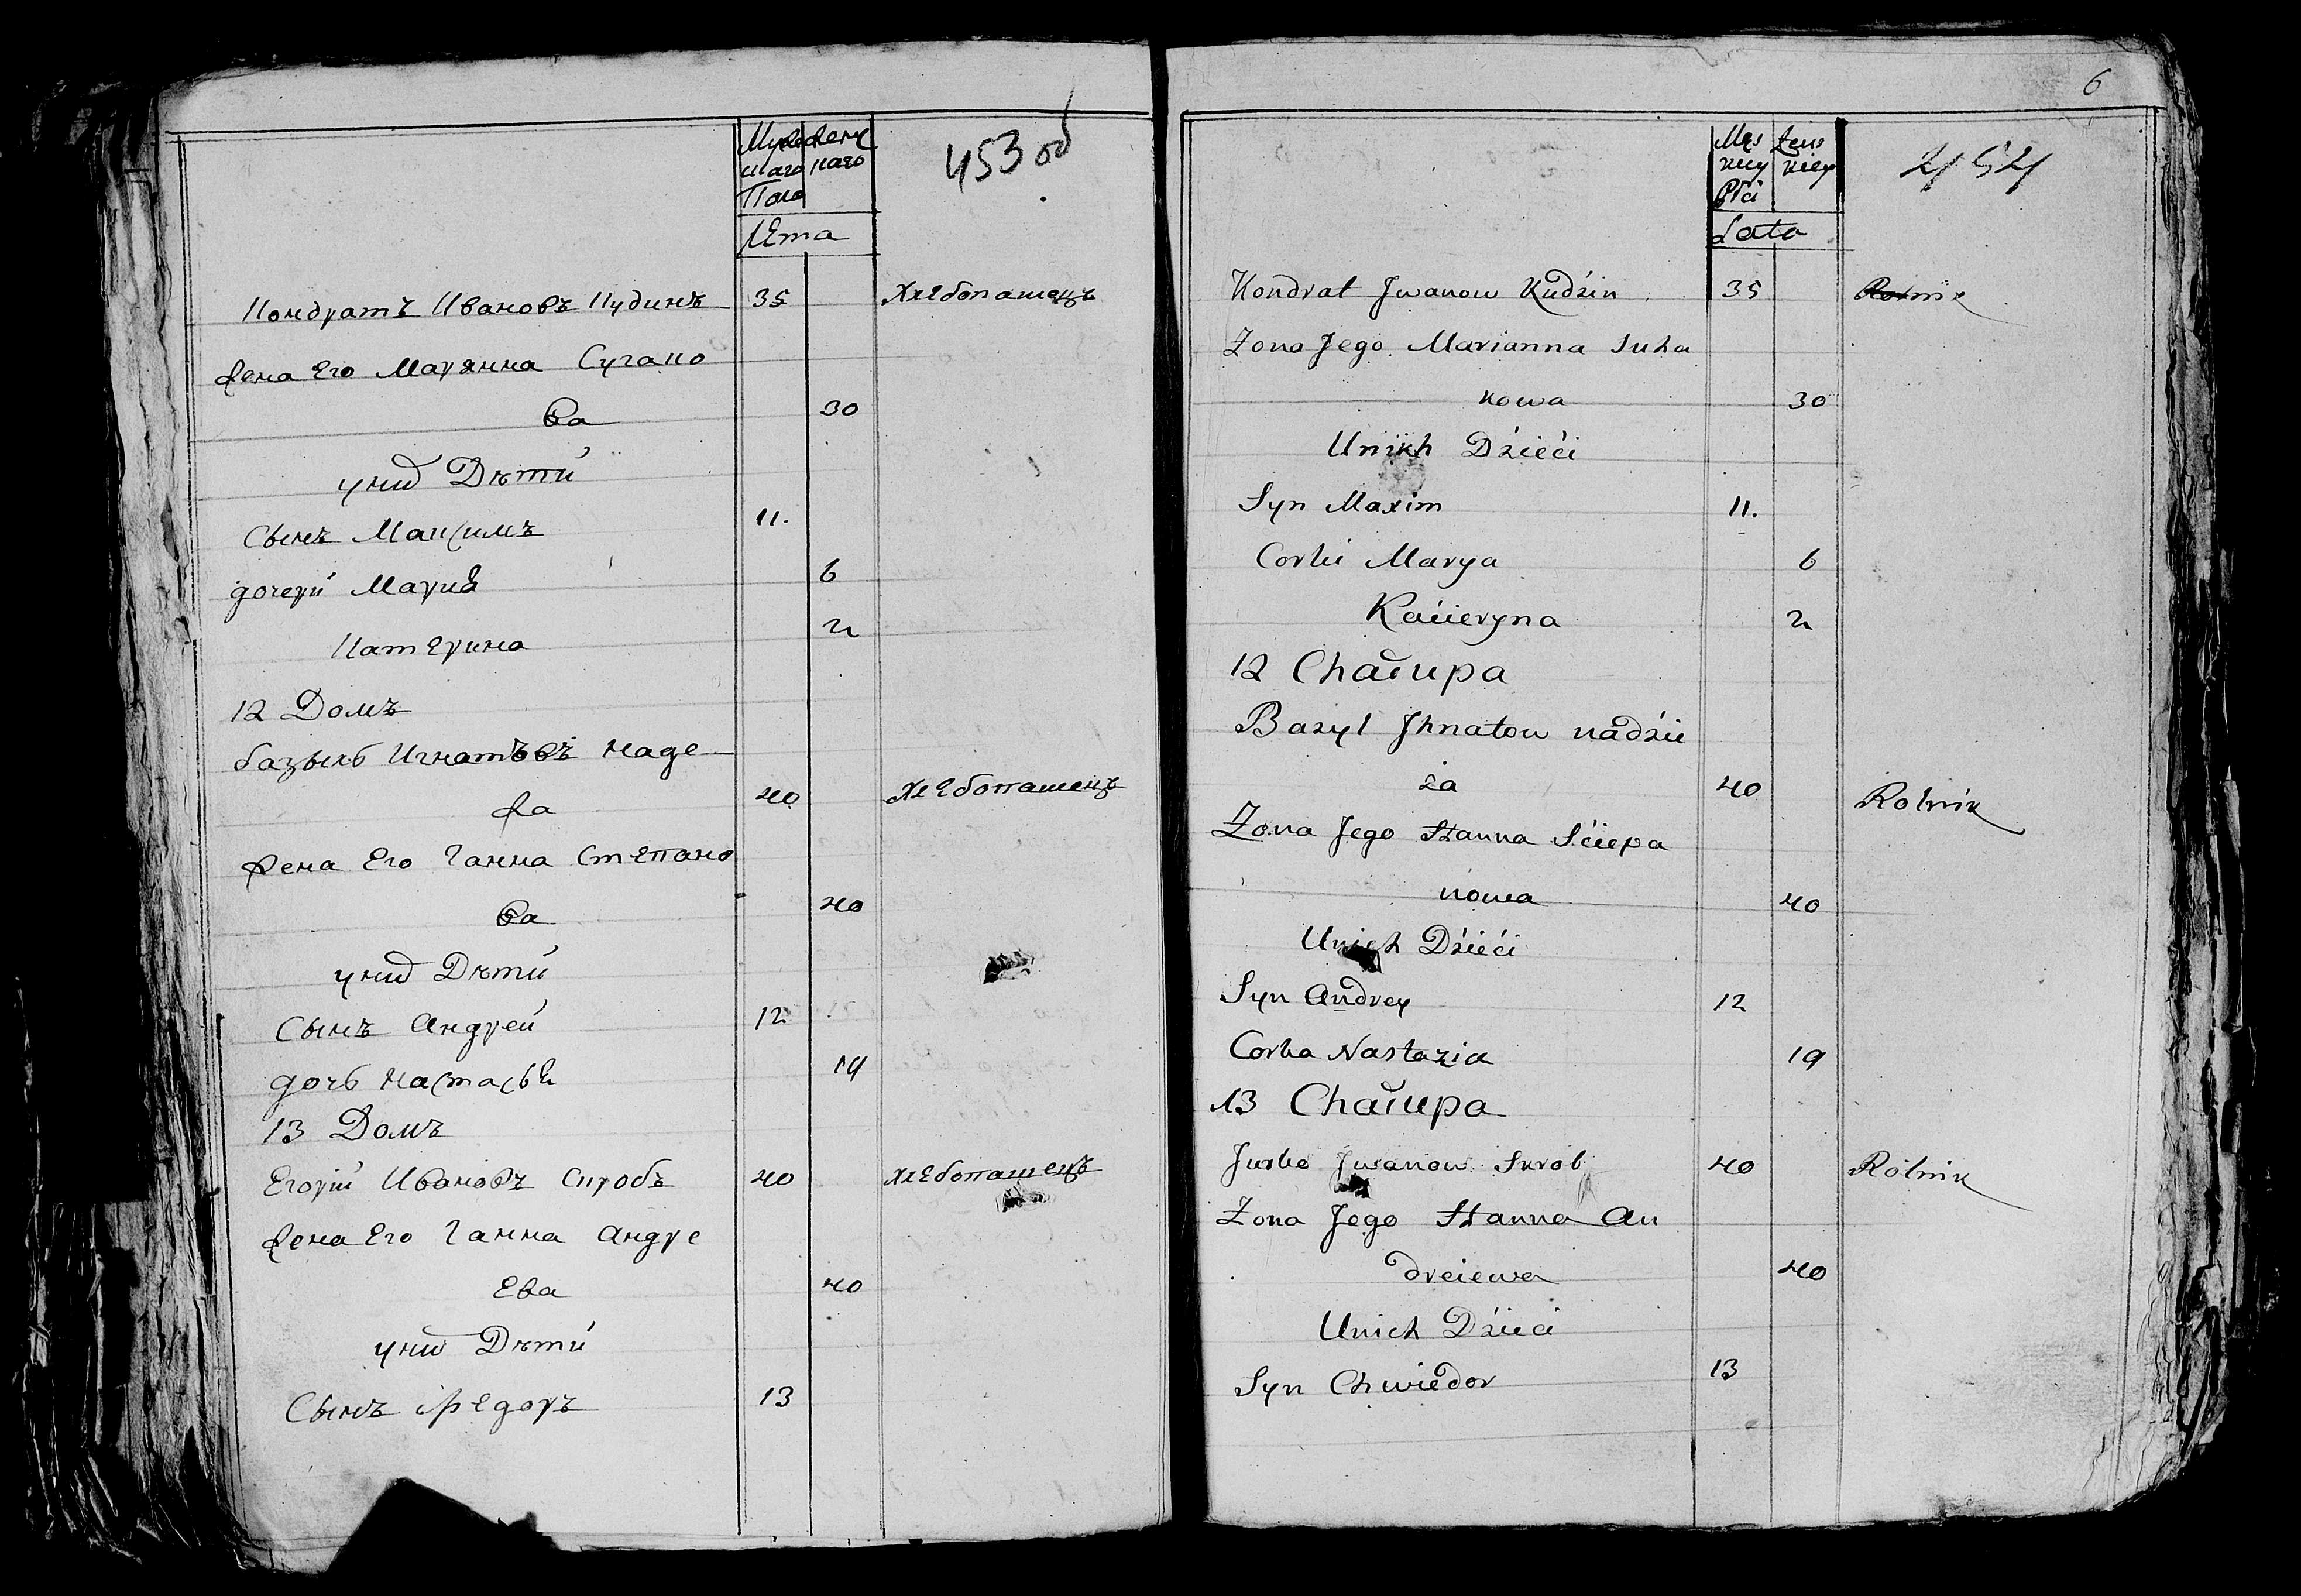 Мужес Женс
каго каго
Пола
453 об
Лѣта
Кондратъ Ивановъ Кудинъ 35 Хлебопашецъ
Жена Его Марянна Сугако
ва 30
у нихъ Дѣти
Сынъ Максимъ 11.
дочери Мария 6
Катерина 2
12 Домъ
базыль Игнатьевъ Наде
жа 40 Хлебопашецъ
Жена Его Ганна Степано
ва 40
у нихъ Дѣти
Сынъ Андрей 12
дочь Настасья 19
13 Домъ
Егорій Ивановъ Скробъ 40 Хлебопашецъ
Жена Его Ганна Андре
Ева 40
у нихъ Дѣти
Сынъ Федоръ 13
6
Męs Żens
kiey kiey
Płci
454
Lata
Kondrat Jwanow Kudzin 35 Rolnik
Zona Jego Marianna Suha
kowa 30
Unikh Dzieći
Syn Maxim 11.
Corki Marya 6
Kacieryna 2
12 Chałupa
Bazyl Jhnatow nadzie
za 40 Rolnik
Zona Jego Hanna Sciepa
nowa 40
Unich Dzieći
Syn Andrey 12
Corka Nastazia 19
13 Chałupa
Jurko Jwanow Skrob 40 Rolnik
Zona Jego Hanna An
dreiewa 40
Unich Dzieci
Syn Chwiedor 13